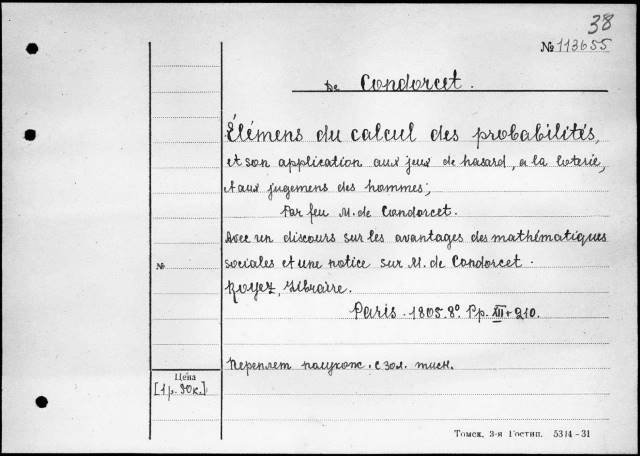 38
№ 113655
De Condorcet.
Élémens du calcul des probabilités,
et son application aux jeux de hasard, a la loterie,
et aux jugemens des hommes;
Par feu M. de Condorcet.
Avec un discours sur les avantages des mathématiques
sociales et une notice sur M. de Condorcet.
№
Royez, Libraire.
Paris. 1805. 8º. Pp. XIII + 210.
Переплет полукож. с зол. тисн.
Цена
[1 р. 90 к.]
Томск, 3-я Гостип. 5314-31